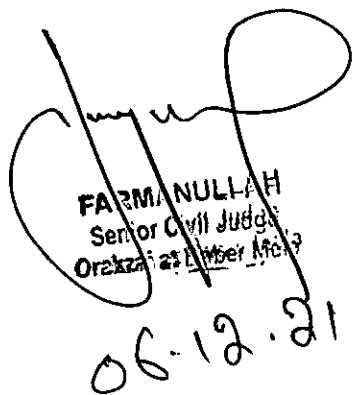 FARMANULLAH
Senior Civil Judge
Orakzai at Baber Mela
06.12.21